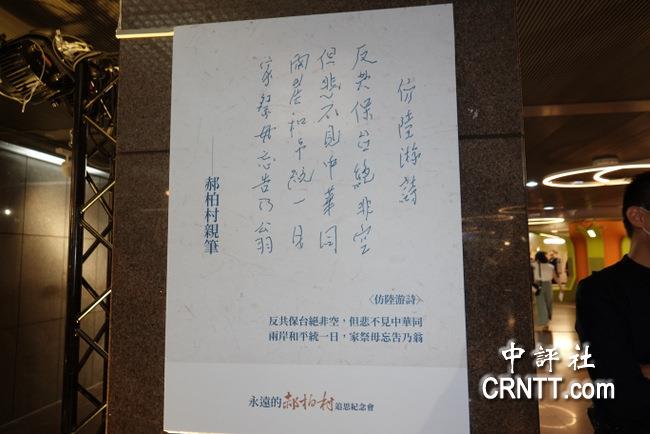 仿陸游詩
反共保台絕非空
但悲不見中華同
兩岸和平統一日
家祭毋忘告乃翁
——郝柏村親筆
〈仿陸游詩〉
反共保台絕非空，但悲不見中華同
兩岸和平統一日，家祭毋忘告乃翁
永遠的郝柏村追思紀念會
中評社
CRNTT.com